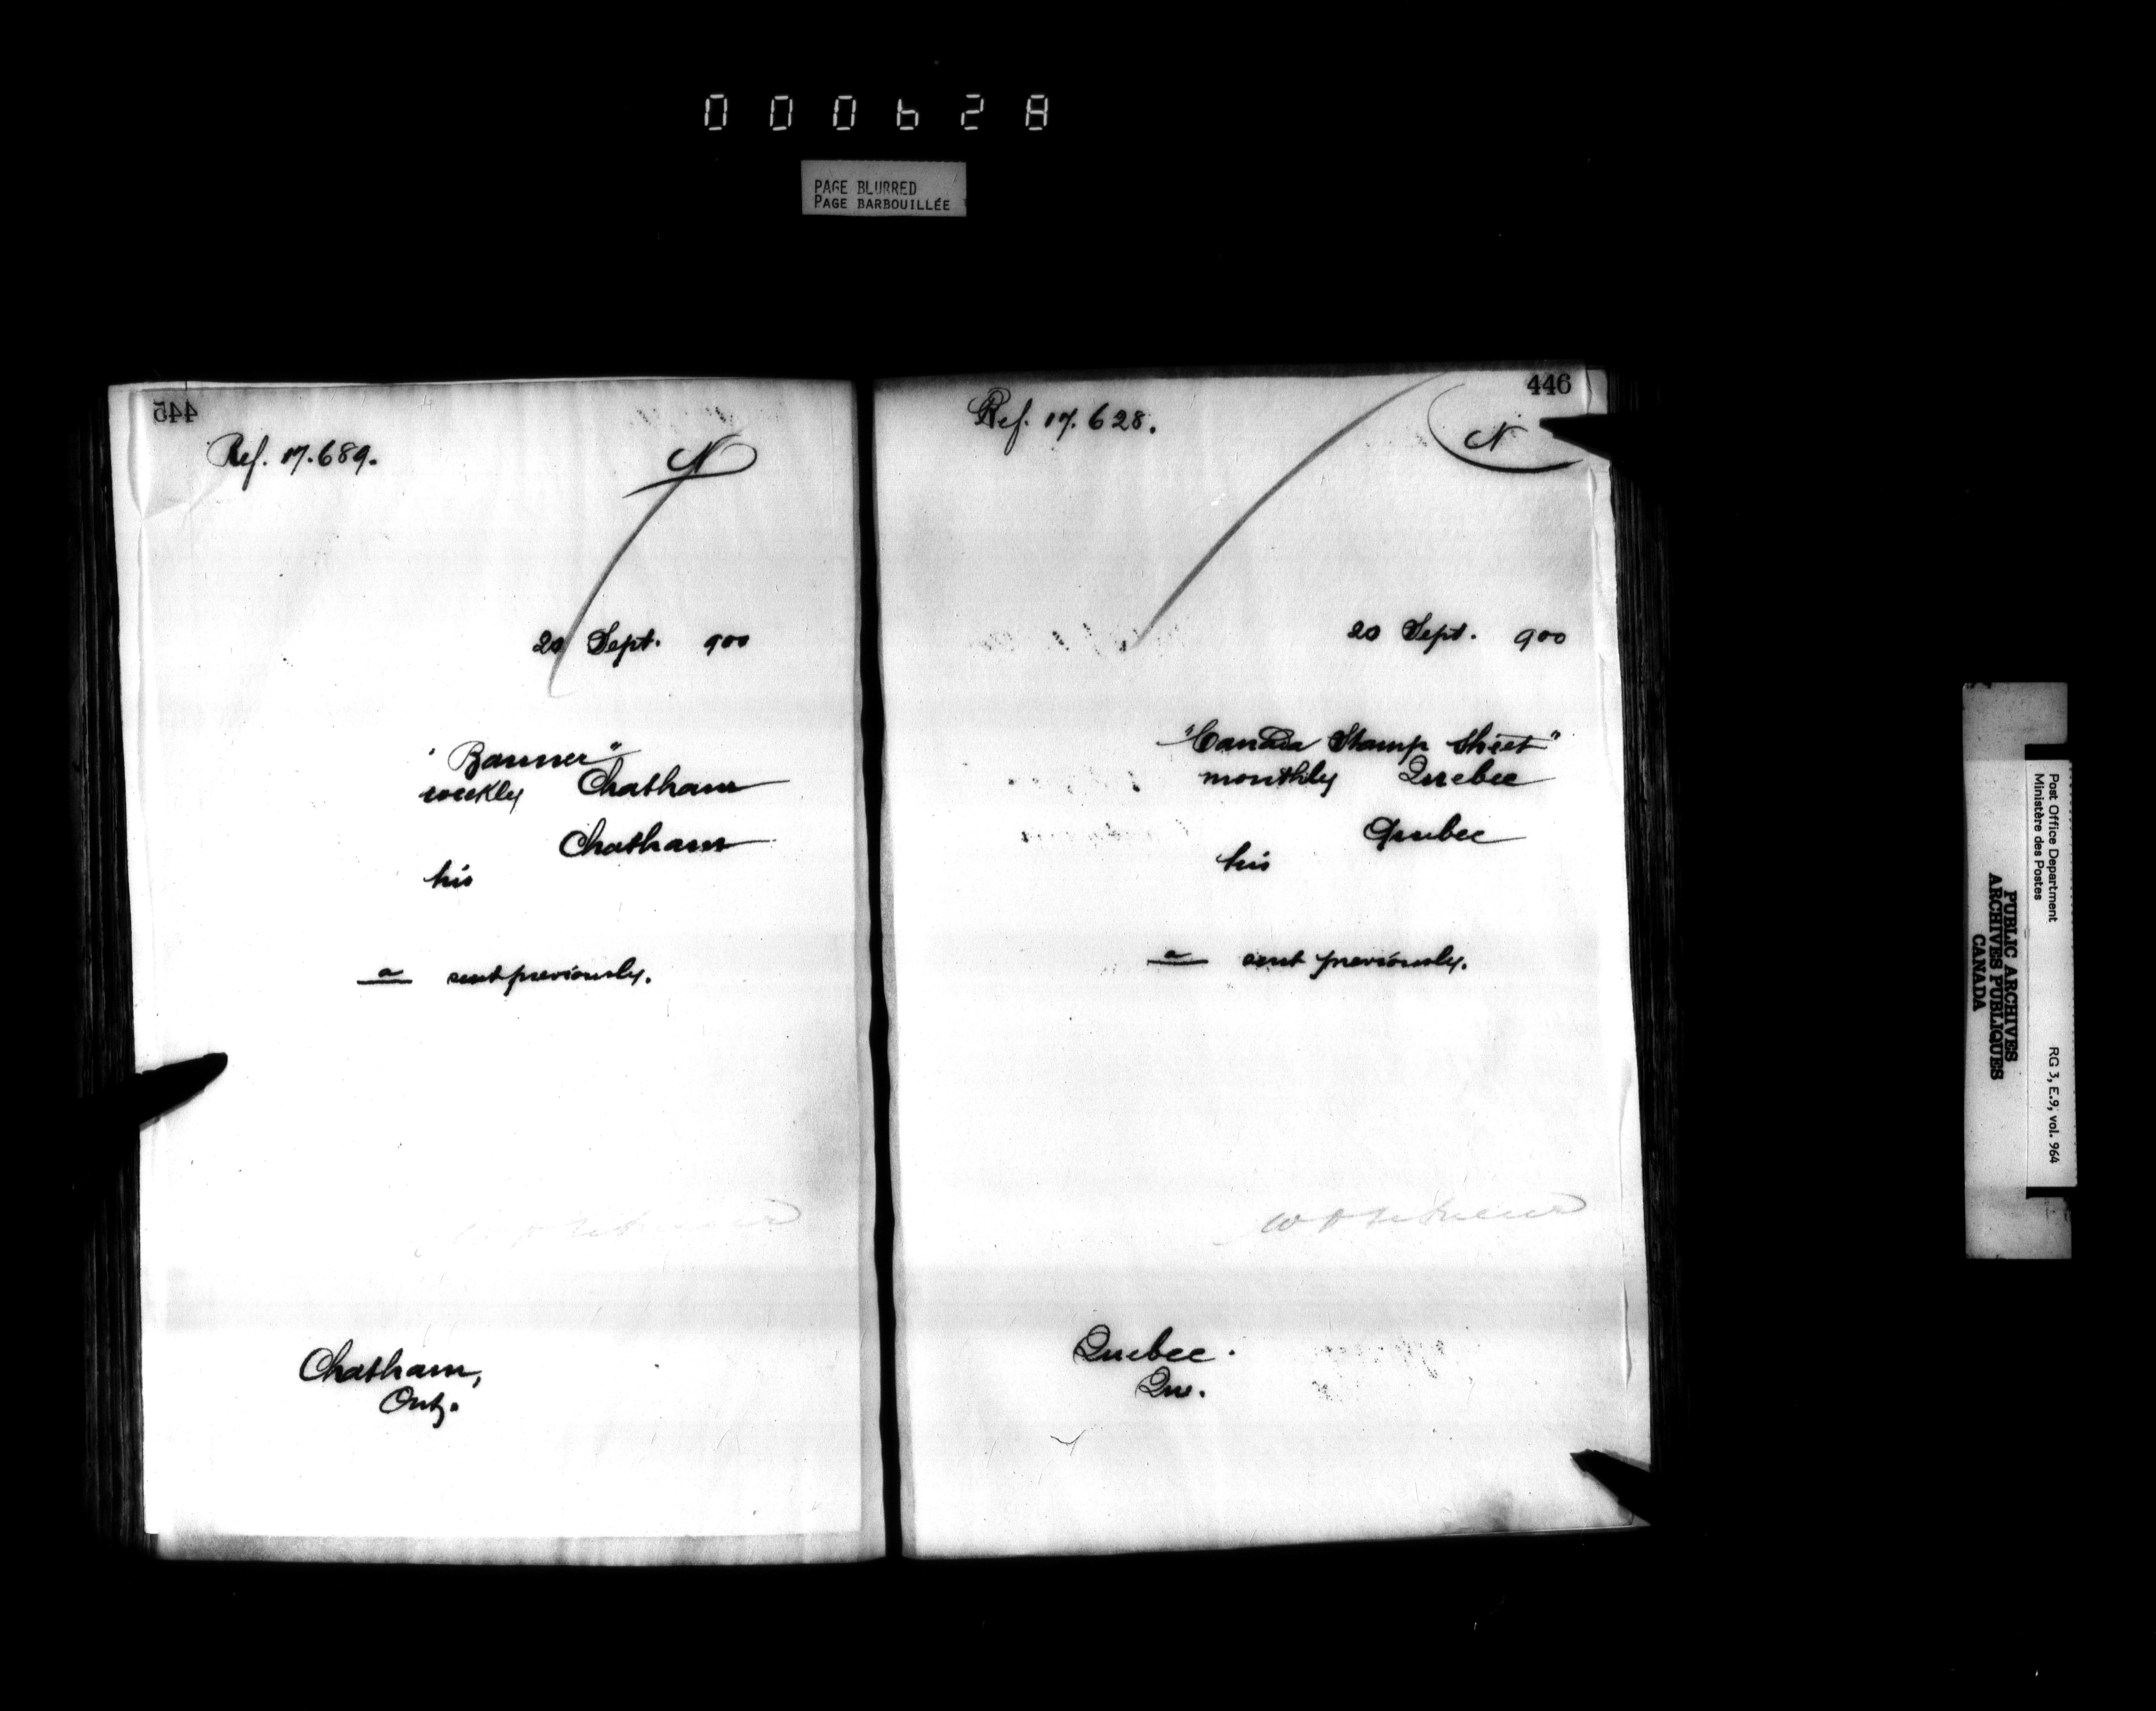 000628
PAGE BLURRED
PAGE BARBOUILLÉE
445
Ref. 17.689.
N
20 Sept. 900
"Banner"
weekly Chatham
Chatham
his
a sent previously.
Chatham,
Ont.
446
Ref. 17.628.
N
20 Sept. 900
"Canada Stamp Sheet"
monthly Quebec
Quebec
his
a sent previously.
Quebec.
Que.
Post Office Department
Ministère des Postes
RG 3, E.9, vol. 964
PUBLIC ARCHIVES
ARCHIVES PUBLIQUES
CANADA